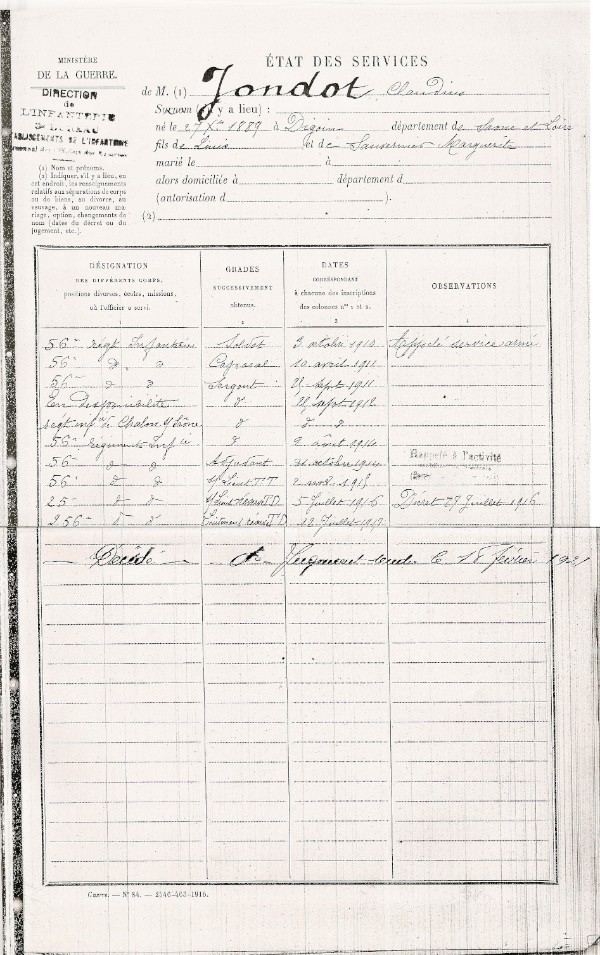 MINISTÈRE
DE LA GUERRE.
DIRECTION
de
L'INFANTERIE
BUREAU
(1) Nom et prénoms.
(2) Indiquer, s'il y a lieu, en
cet endroit, les renseignements
relatifs aux séparations de corps
ou de biens, au divorce, au
veuvage, à un nouveau ma-
riage, option, changements de
noms (dates du décret ou du
jugement, etc.).
ÉTAT DES SERVICES
de M. (1) Jondot Claudius
Surnom (s'il y a lieu) :
né le 27 Xbre 1889 à Digoin département de Saone et Loire
fils de Louis et de Marguerite
marié le à
alors domiciliée à département d
(autorisation d ).
(2)
DÉSIGNATION
DES DIFFÉRENTS CORPS,
positions diverses, écoles, missions,
où l'officier a servi.
1
GRADES
SUCCESSIVEMENT
obtenus.
2
DATES
CORRESPONDANT
à chacune des inscriptions
des colonnes nos 1 et 2.
3
OBSERVATIONS
4
56e régt Infanterie Soldat 3 octobre 1910 Appelé service armé
56e d d Caporal 10 avril 1911
56e d d Sergent sept 1911
En disponibilité d sept 1912
régt infie de Chalon s/ Saône d d d
56e régiment Infie d 2 août 1914 Rappelé à l'activité
56 d d Adjudant 21 octobre 1914
56e d d s/ Lieut T.T. 2 nov. 1915
25e d d s/ Lieut réserve T.D. 5 juillet 1916 Décret 27 Juillet 1916
256e d d Lieutenant réserve T.D. 12 Juillet 1917
Décédé à le 18 février
Guerre. — N° 84. — 2546-463-1915.